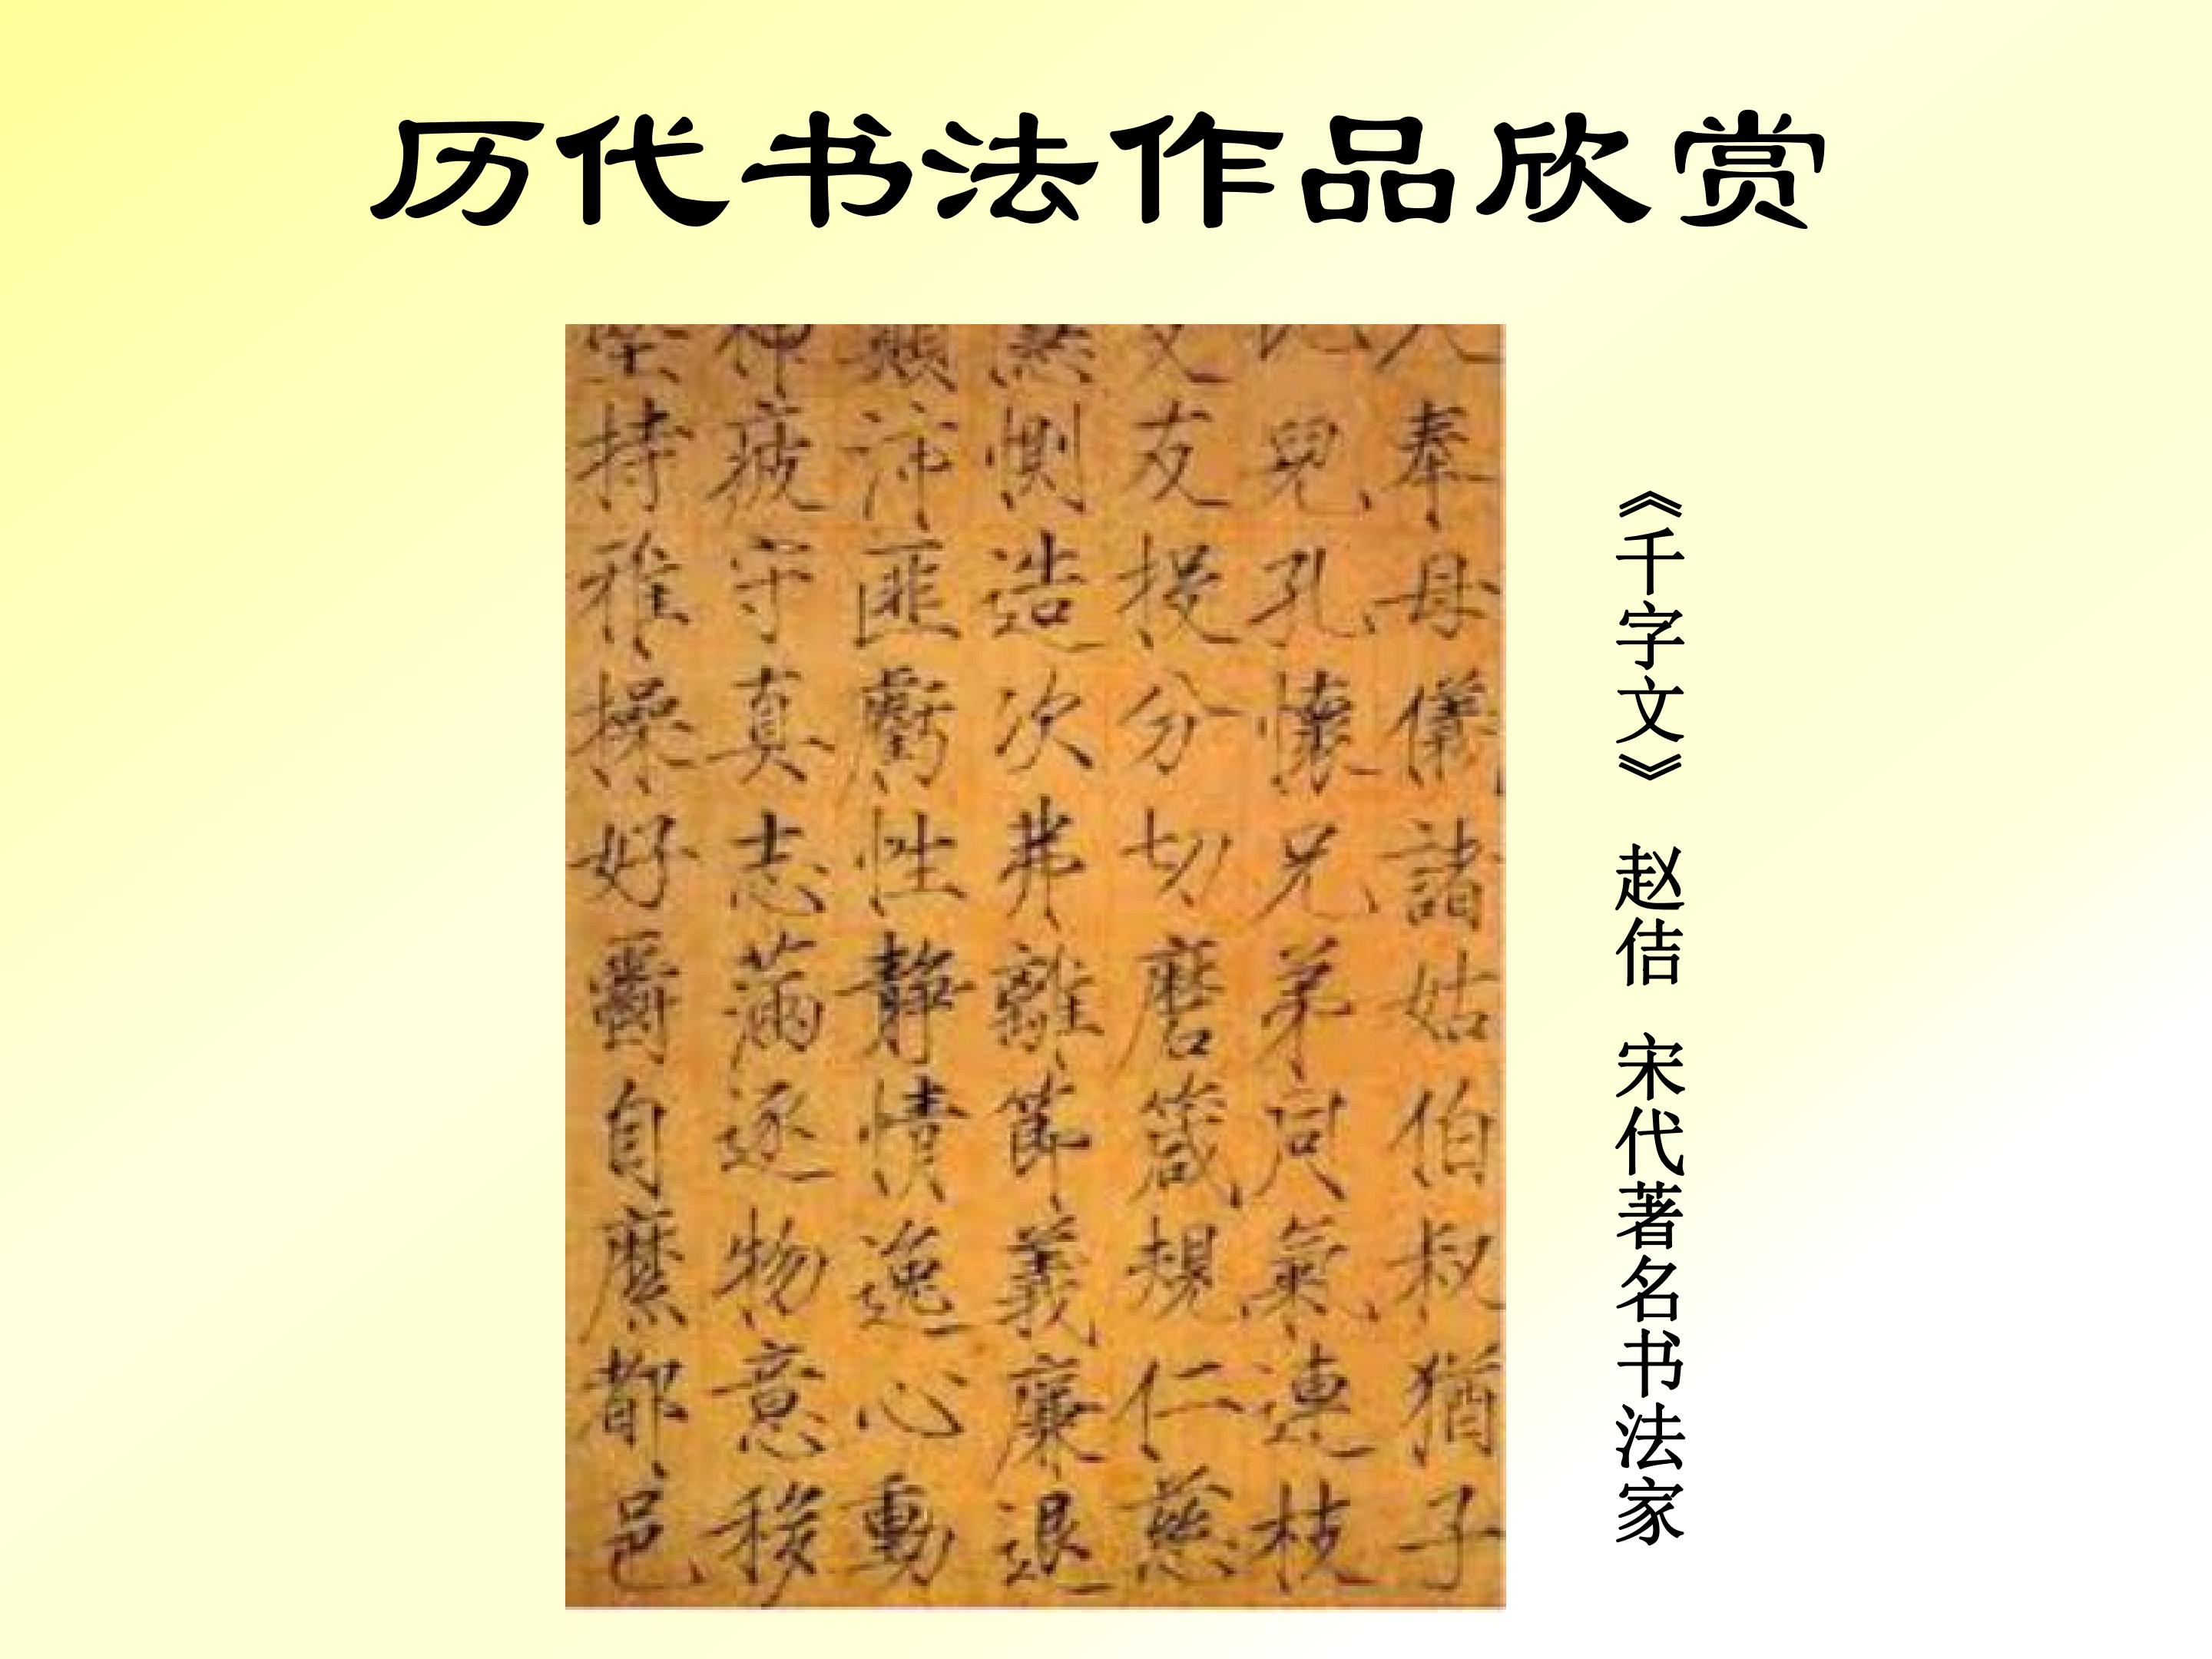 历代书法作品欣赏
奉母儀諸姑伯叔猶子
兒孔懷兄弟同氣連枝
交友投分切磨箴規仁慈
惻造次弗離節義廉退
顛沛匪虧性靜情逸心動
神疲守真志滿逐物意移
堅持雅操好爵自縻都邑
《千字文》 赵佶 宋代著名书法家